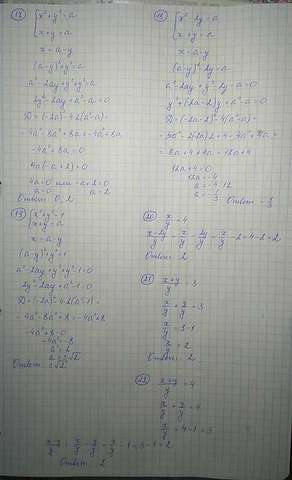 17) { x² + y² = a
x + y = a
x = a - y
(a-y)² + y² = a
a² - 2ay + y² + y² = a
2y² - 2ay + a² - a = 0
D = (-2a)² - 4·2(a² - a) =
= 4a² - 8a² + 8a = -4a² + 8a
-4a² + 8a = 0
4a(-a + 2) = 0
4a = 0 или -a + 2 = 0
a = 0 a = 2
Ответ: 0; 2
18) { x² - 2y = a
x + y = a
x = a - y
(a-y)² - 2y = a
a² - 2ay + y² - 2y - a = 0
y² + (-2a-2)y + a² - a = 0
D = (-2a-2)² - 4(a² - a) =
= 8a + 4 + 4a = 12a + 4
12a + 4 = 0
12a = -4
a = -4 : 12
Ответ:
19) { x² + y² = 1
x + y = a
x = a - y
(a-y)² + y² = 1
a² - 2ay + y² + y² - 1 = 0
2y² - 2ay + a² - 1 = 0
D = (-2a)² - 4·2(a² - 1) =
= 4a² - 8a² + 8 = -4a² + 8
-4a² + 8 = 0
-4a² = -8
a² = 2
a = ±√2
Ответ: ±√2
20) x/y = 4
(x-2y)/y = x/y - 2y/y = x/y - 2 = 4 - 2 = 2
Ответ: 2
21) (x+y)/y = 3
x/y + y/y = 3
x/y = 3 - 1
x/y = 2
Ответ: 2
(x+y)/y = 4
x/y + y/y = 4
x/y = 4 - 1 = 3
(x-y)/y = x/y - y/y = x/y - 1 = 3 - 1 = 2
Ответ: 2